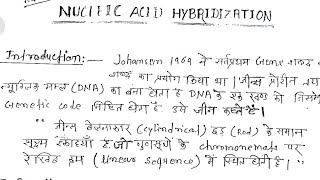 NUCLEIC ACID HYBRIDIZATION
Introduction:— Johansen 1909 में सर्वप्रथम Gene शब्द
शब्द का प्रयोग किया था। जीन्स प्रोटीन तथा
न्यूक्लिक अम्ल (DNA) का बना होता है DNA के एक खण्ड जो जिसमें
Genetic code निहित होता है उसे जीन कहते हैं।
"जीन्स बेलनाकार (Cylindrical) छड़ (Rod) के समान
सूक्ष्म इकाइयाँ हैं जो गुणसूत्रों के chromonemata पर
रेखित क्रम (linear sequence) में स्थित होती है।"